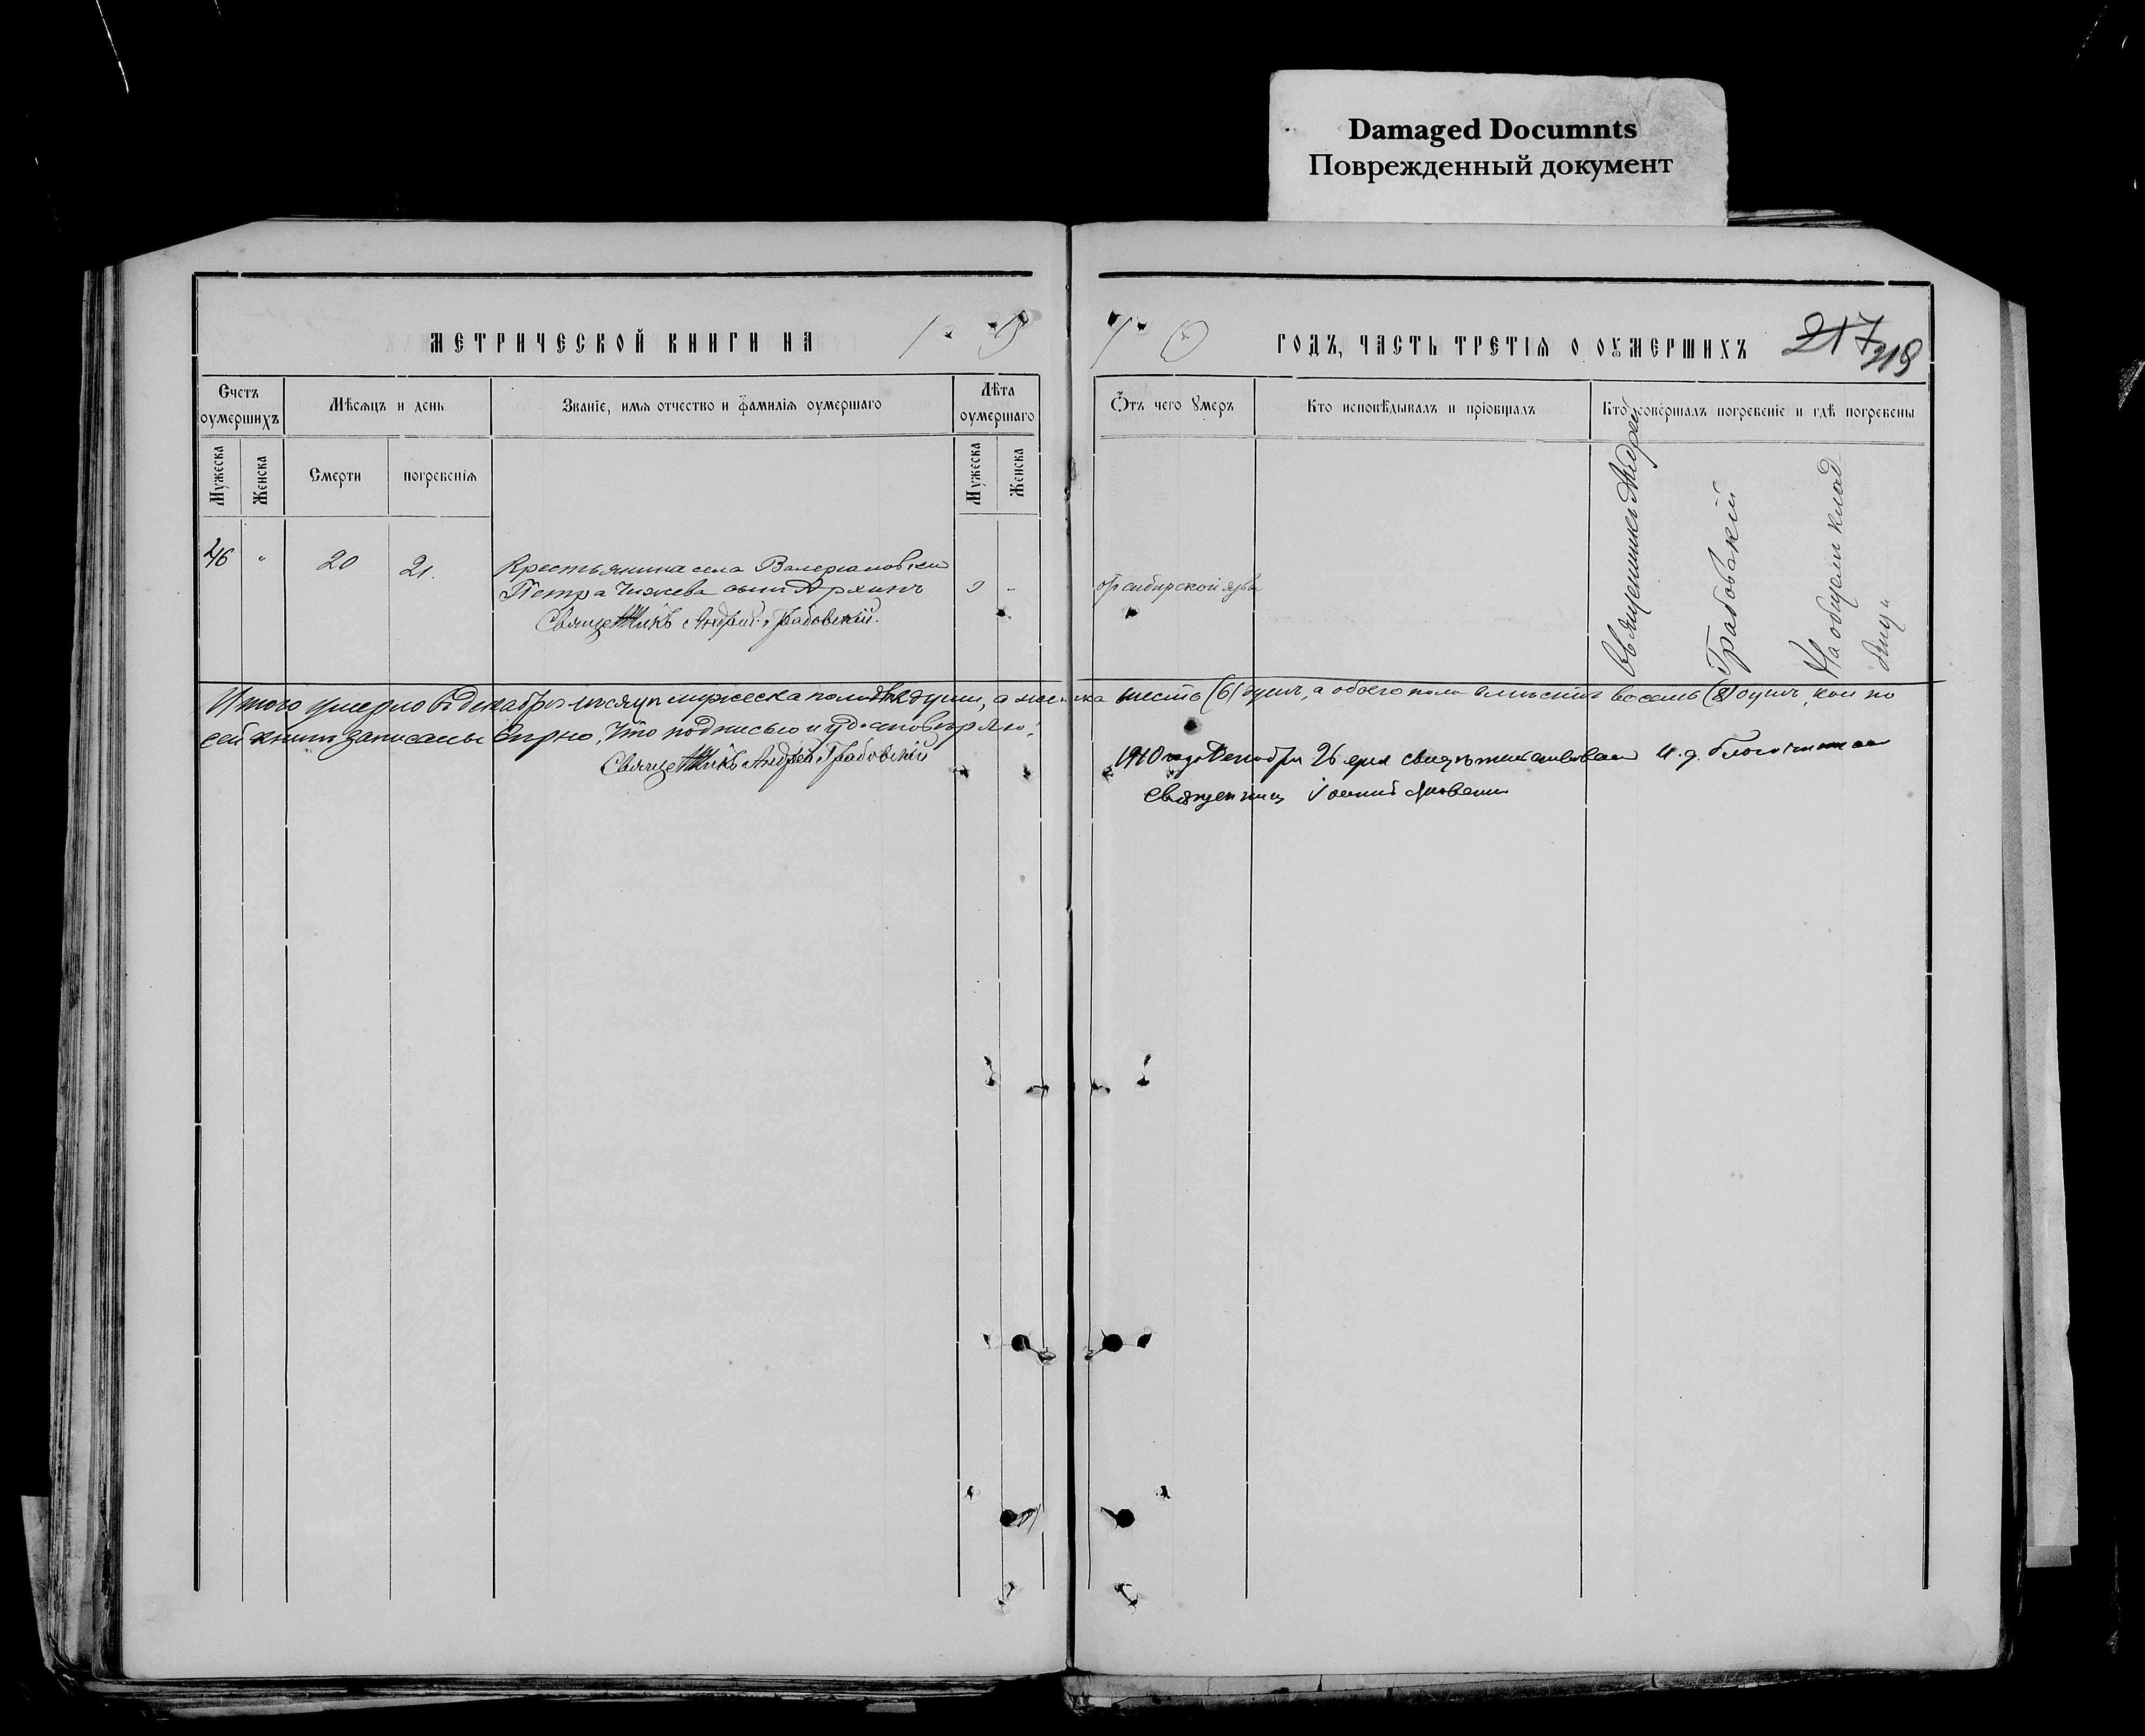 Damaged Documnts
Поврежденный документ
МЕТРИЧЕСКОЙ КНИГИ НА 19
10 ГОДЪ, ЧАСТЬ ТРЕТІЯ О ОУМЕРШИХЪ 217 218
Счетъ оумершихъ
Мѣсяцъ и день
Званіе, имя отчество и фамилія оумершаго
Лѣта оумершаго
Ѿтъ чего Умеръ
Кто исповѣдывалъ и пріобщалъ
Кто совершалъ погребеніе и гдѣ погребены
Мужеска
Женска
Смерти
погребенія
Мужеска
Женска
46 " 20 21.
Крестьянина села Валериановки
Петра Чижева сынъ Архипъ
Священникъ Андрей Грабовскій.
отъ сибирской язвы
Священникъ Андрей
Грабовскій
На общемъ клад
бищи
Итого умерло въ декабрѣ мѣсяцѣ мужеска пола двѣ души, а женска шесть (6) душъ, а обоего пола вмѣстѣ восемь (8) душъ, кои по
сей книгѣ записаны вѣрно, что подписью и удостовѣряю:
Священникъ Андрей Грабовскій
1910 года Декабря 26 дня свидѣтельствовалъ и. д. Благочиннаго
Священникъ